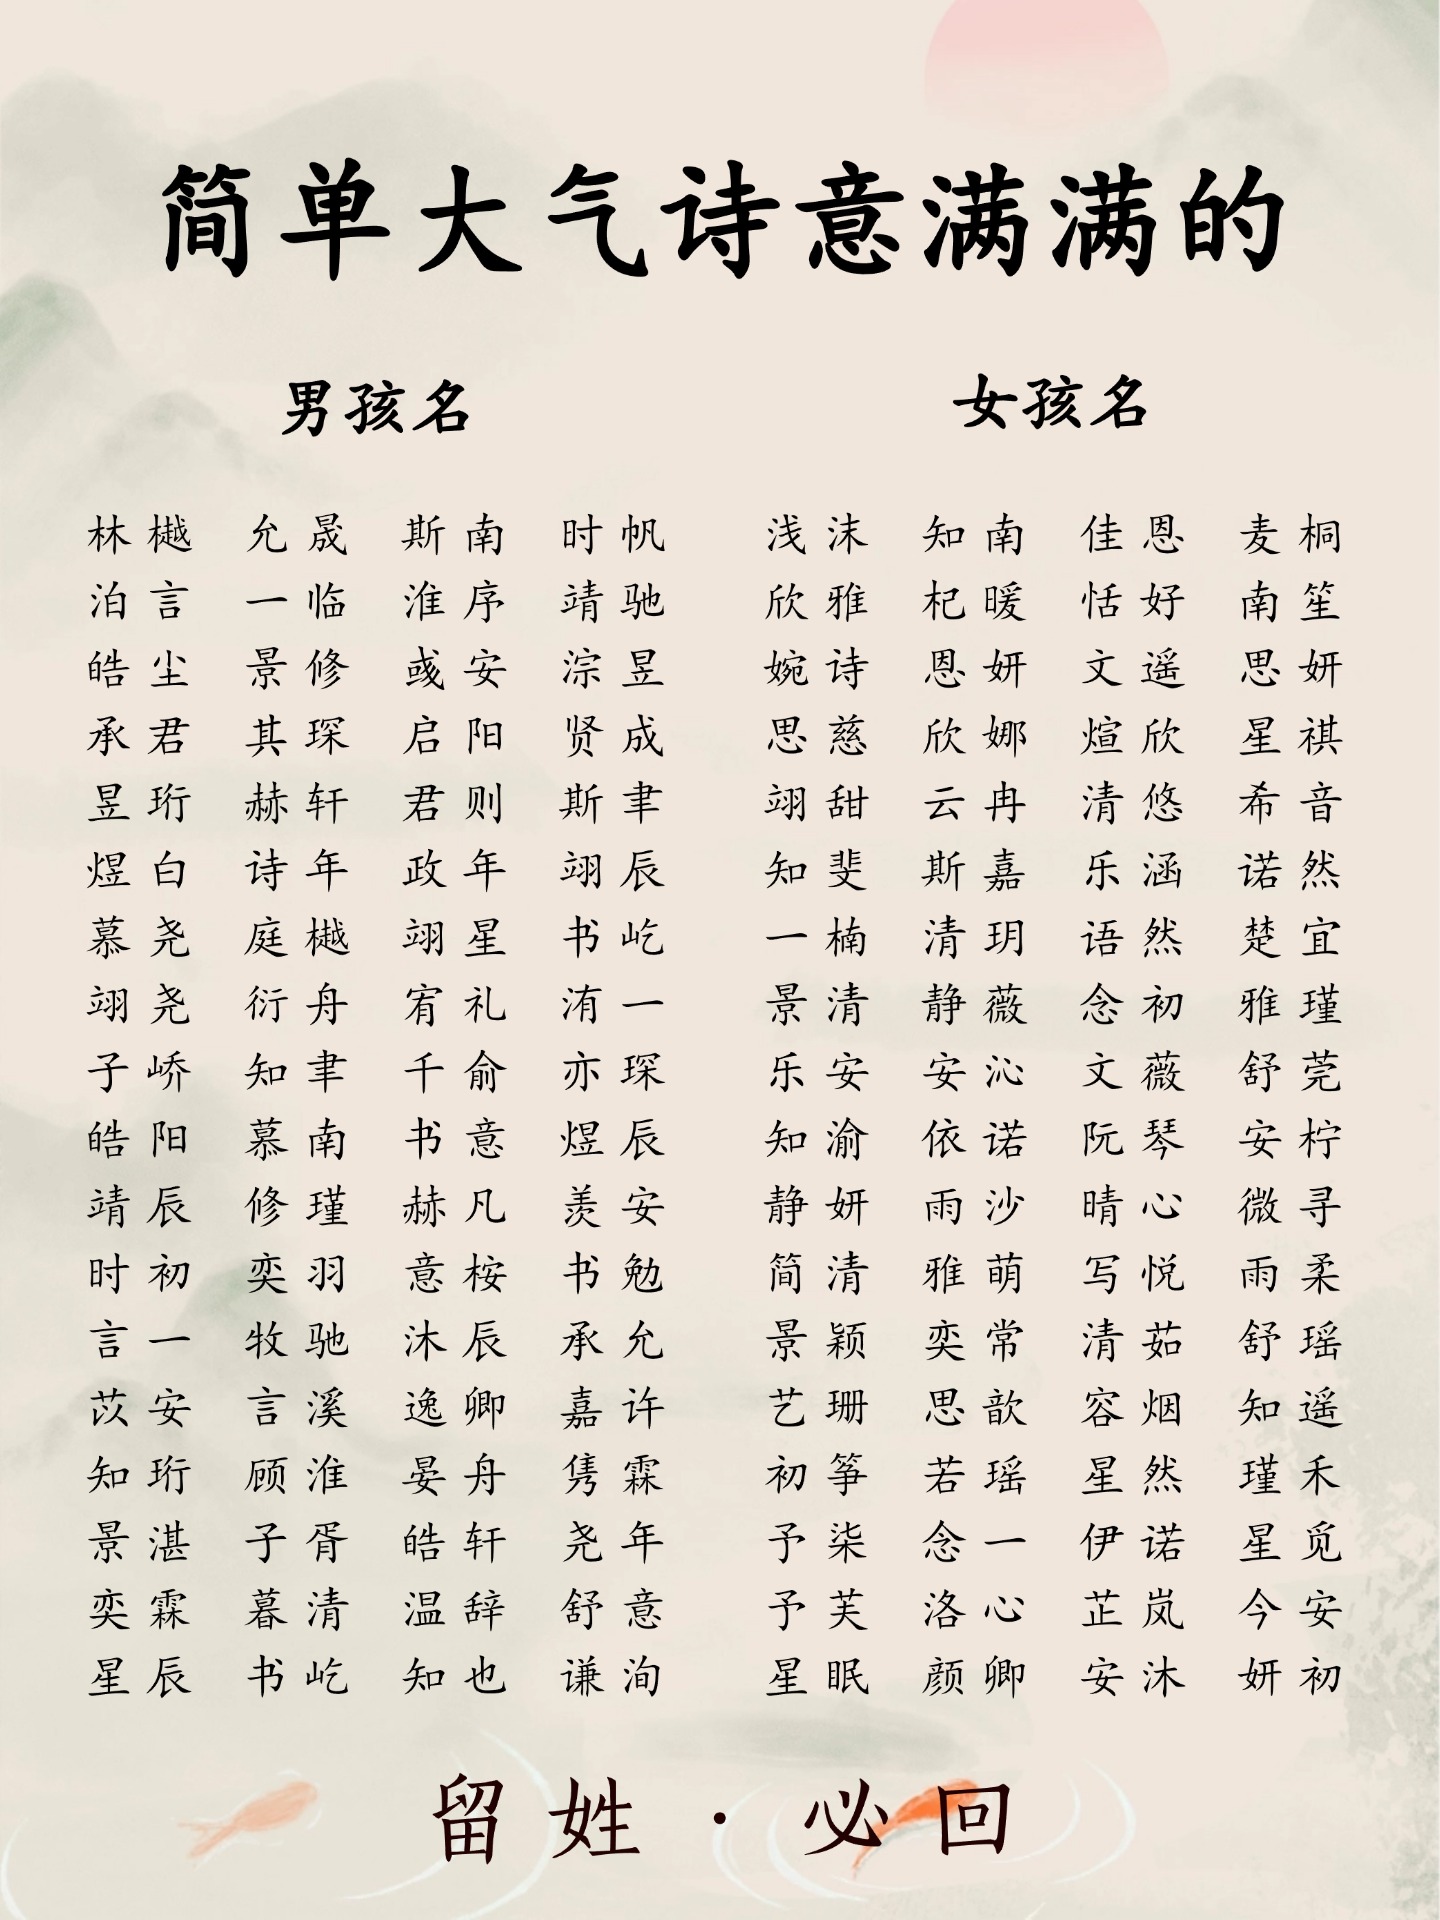 简单大气诗意满满的
男孩名 女孩名
林樾 允晟 斯南 时帆 浅沫 知南 佳恩 麦桐
泊言 一临 淮序 靖驰 欣雅 杞暖 恬好 南笙
皓尘 景修 彧安 淙昱 婉诗 恩妍 文遥 思妍
承君 其琛 启阳 贤成 思慈 欣娜 煊欣 星祺
昱珩 赫轩 君则 斯聿 翊甜 云冉 清悠 希音
煜白 诗年 政年 翊辰 知斐 斯嘉 乐涵 诺然
慕尧 庭樾 翊星 书屹 一楠 清玥 语然 楚宜
翊尧 衍舟 宥礼 洧一 景清 静薇 念初 雅瑾
子峤 知聿 千俞 亦琛 乐安 安沁 文薇 舒莞
皓阳 慕南 书意 煜辰 知渝 依诺 阮琴 安柠
靖辰 修瑾 赫凡 羡安 静妍 雨沙 晴心 微寻
时初 奕羽 意桉 书勉 简清 雅萌 写悦 雨柔
言一 牧驰 沐辰 承允 景颖 奕常 清茹 舒瑶
苡安 言溪 逸卿 嘉许 艺珊 思歆 容烟 知遥
知珩 顾淮 晏舟 隽霖 初筝 若瑶 星然 瑾禾
景湛 子胥 皓轩 尧年 予柒 念一 伊诺 星觅
奕霖 暮清 温辞 舒意 予芙 洛心 芷岚 今安
星辰 书屹 知也 谦洵 星眠 颜卿 安沐 妍初
留姓·必回